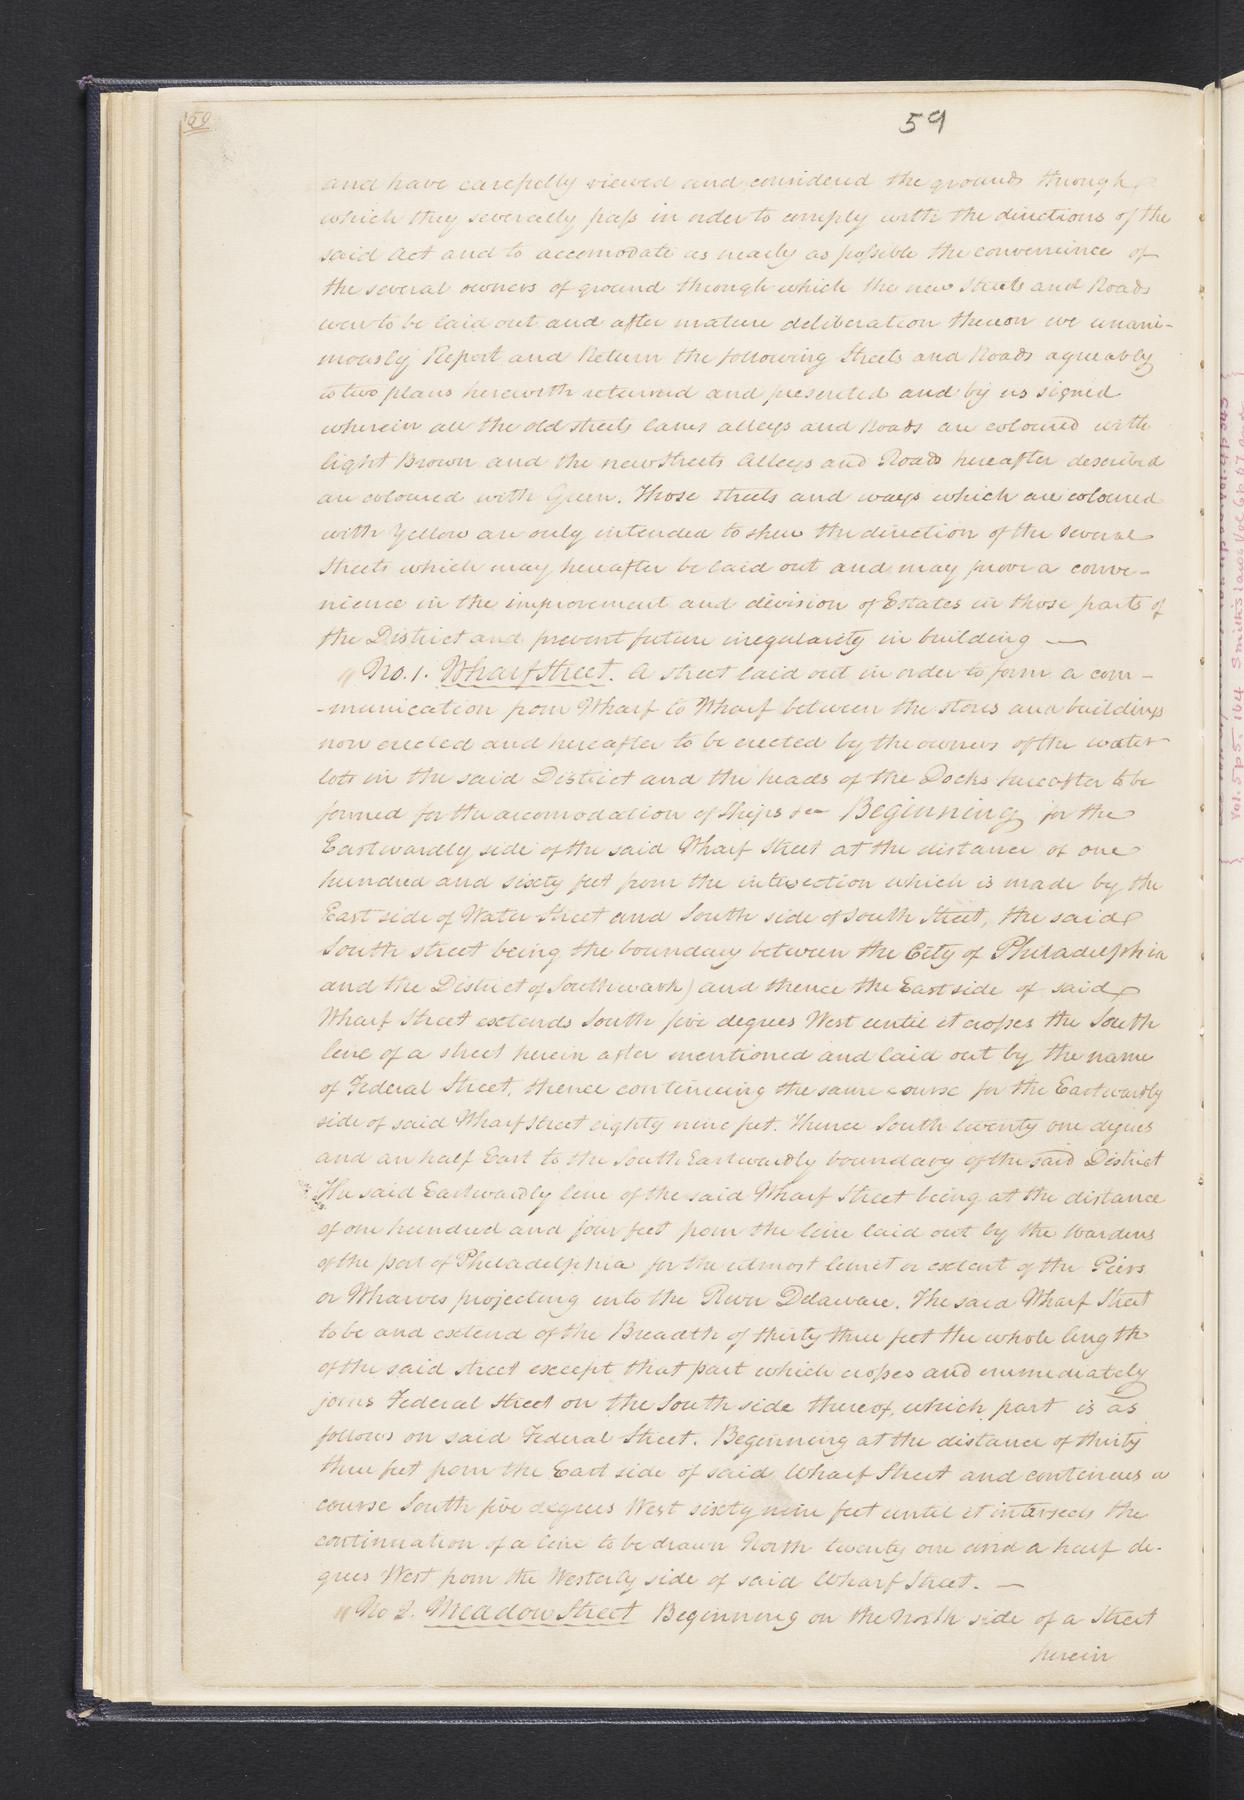 59
59
and have carefully viewed and considered the grounds through
which they severally pass in order to comply with the directions of the
said Act and to accomodate as nearly as possible the convenience of
the several owners of ground through which the new Streets and Roads
were to be laid out and after mature deliberation thereon we unani-
mously Report and Return the following Streets and Roads agreeably
to two plans herewith returned and presented and by us signed
wherein all the old streets lanes alleys and Roads are coloured with
light Brown and the new Streets Alleys and Roads hereafter described
are coloured with Green. Those streets and ways which are coloured
with Yellow are only intended to shew the direction of the several
Streets which may hereafter be laid out and may prove a conve-
nience in the improvement and division of Estates in those parts of
the District and prevent future irregularity in building —
" No. 1. Wharf Street. A street laid out in order to form a com-
-munication from Wharf to Wharf between the stores and buildings
now erected and hereafter to be erected by the owners of the water
lots in the said District and the heads of the Docks hereafter to be
formed for the accomodation of Ships &ca Beginning for the
Eastwardly side of the said Wharf Street at the distance of one
hundred and sixty feet from the intersection which is made by the
East side of Water Street and South side of South Street, the said
South street being the boundary between the City of Philadelphia
and the District of Southwark) and thence the East side of said
Wharf Street extends South five degrees West until it crosses the South
line of a street herein after mentioned and laid out by the name
of Federal Street, thence continueing the same course for the Eastwardly
side of said Wharf Street eighty nine feet. Thence South twenty one degrees
and an half East to the South Eastwardly boundary of the said District
The said Eastwardly line of the said Wharf Street being at the distance
of one hundred and four feet from the line laid out by the Wardens
of the port of Philadelphia for the utmost limit or extent of the Piers
or Wharves projecting into the River Delaware. The said Wharf Street
to be and extend of the Breadth of thirty three feet the whole length
of the said street except that part which crosses and immediately
joins Federal Street on the South side thereof, which part is as
follows on said Federal Street. Beginning at the distance of thirty
three feet from the East side of said Wharf Street and continues a
course South five degrees West sixty nine feet until it intersects the
continuation of a line to be drawn North twenty one and a half de-
grees West from the Westerly side of said Wharf Street. —
" No 2. Meadow Street Beginning on the North side of a Street
herein
Vol. 5 p 5-164 Smith's laws Vol 6 p